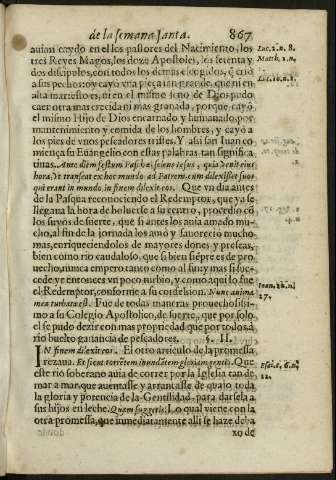 de la semana santa. 867
auian caydo en ellos pastores del Nacimiento, los
tres Reyes Magos, los doze Apostoles, los setenta y
dos discipulos, con todos los demas escogidos, q̃ criò
a sus pechos: oy cayò una pieça tan grande, que ni en
alta mar, ni en el mismo seno de Dios pudo
caer otra mas crecida ni mas granada, porque cayò
el mismo Hijo de Dios encarnado y humanado, por
mantenimiento y comida de los hombres, y cayò a
los pies de unos pescadores tristes. Y assi san Iuan co
miença su Euangelio con estas palabras tan significa
tiuas. Ante diem festum Paschæ sciens Iesus, quia venit eius
hora, vt transeat ex hoc mundo ad Patrem, cum dilexisset suos
qui erant in mundo, in finem dilexit eos. Que vn dia antes
de la Pasqua reconociendo el Redemptor, que ya se
llegaua la hora de boluerse a su centro, procedio cõ
los suyos de suerte, que si antes los auia amado mu-
cho, al fin de la jornada los amò y fauorecio mucho
mas, enriqueciendolos de mayores dones y preseas,
bien como rio caudaloso, que si bien siẽpre es de pro
uecho, nunca empero tanto como al fin, y mas si su-
cede yr entonces vn poco turbio, y como aqui lo fue
el Redemptor, conforme a su confession. Nunc anima
mea turbata est. Fue de todas maneras prouechosissi-
mo a su Colegio Apostolico, de suerte, que por solo
el se pudo dezir con mas propriedad que por todos, à
rio buelto ganancia de pescadores. §. II.
IN finem dilexit eos. El otro articulo de la promessa
rezaua. Et sicut torrẽtem inundãtem gloriam gentiũ. Que
este rio soberano auia de correr por la Iglesia tan de
mar a mar, que auentasse y arrancasse de quajo toda
la gloria y potencia de la Gentilidad, para darsela a
sus hijos en leche. Quam suggetis. Lo qual viene con la
otra promessa, que inmediatamente alli se haze ba
xo de
Luc. 2. n. 8.
Matth. 2. n.
Luc. 10. n. 1.
Ioan. 12. n.
27.
Esai. 6. n.
12.